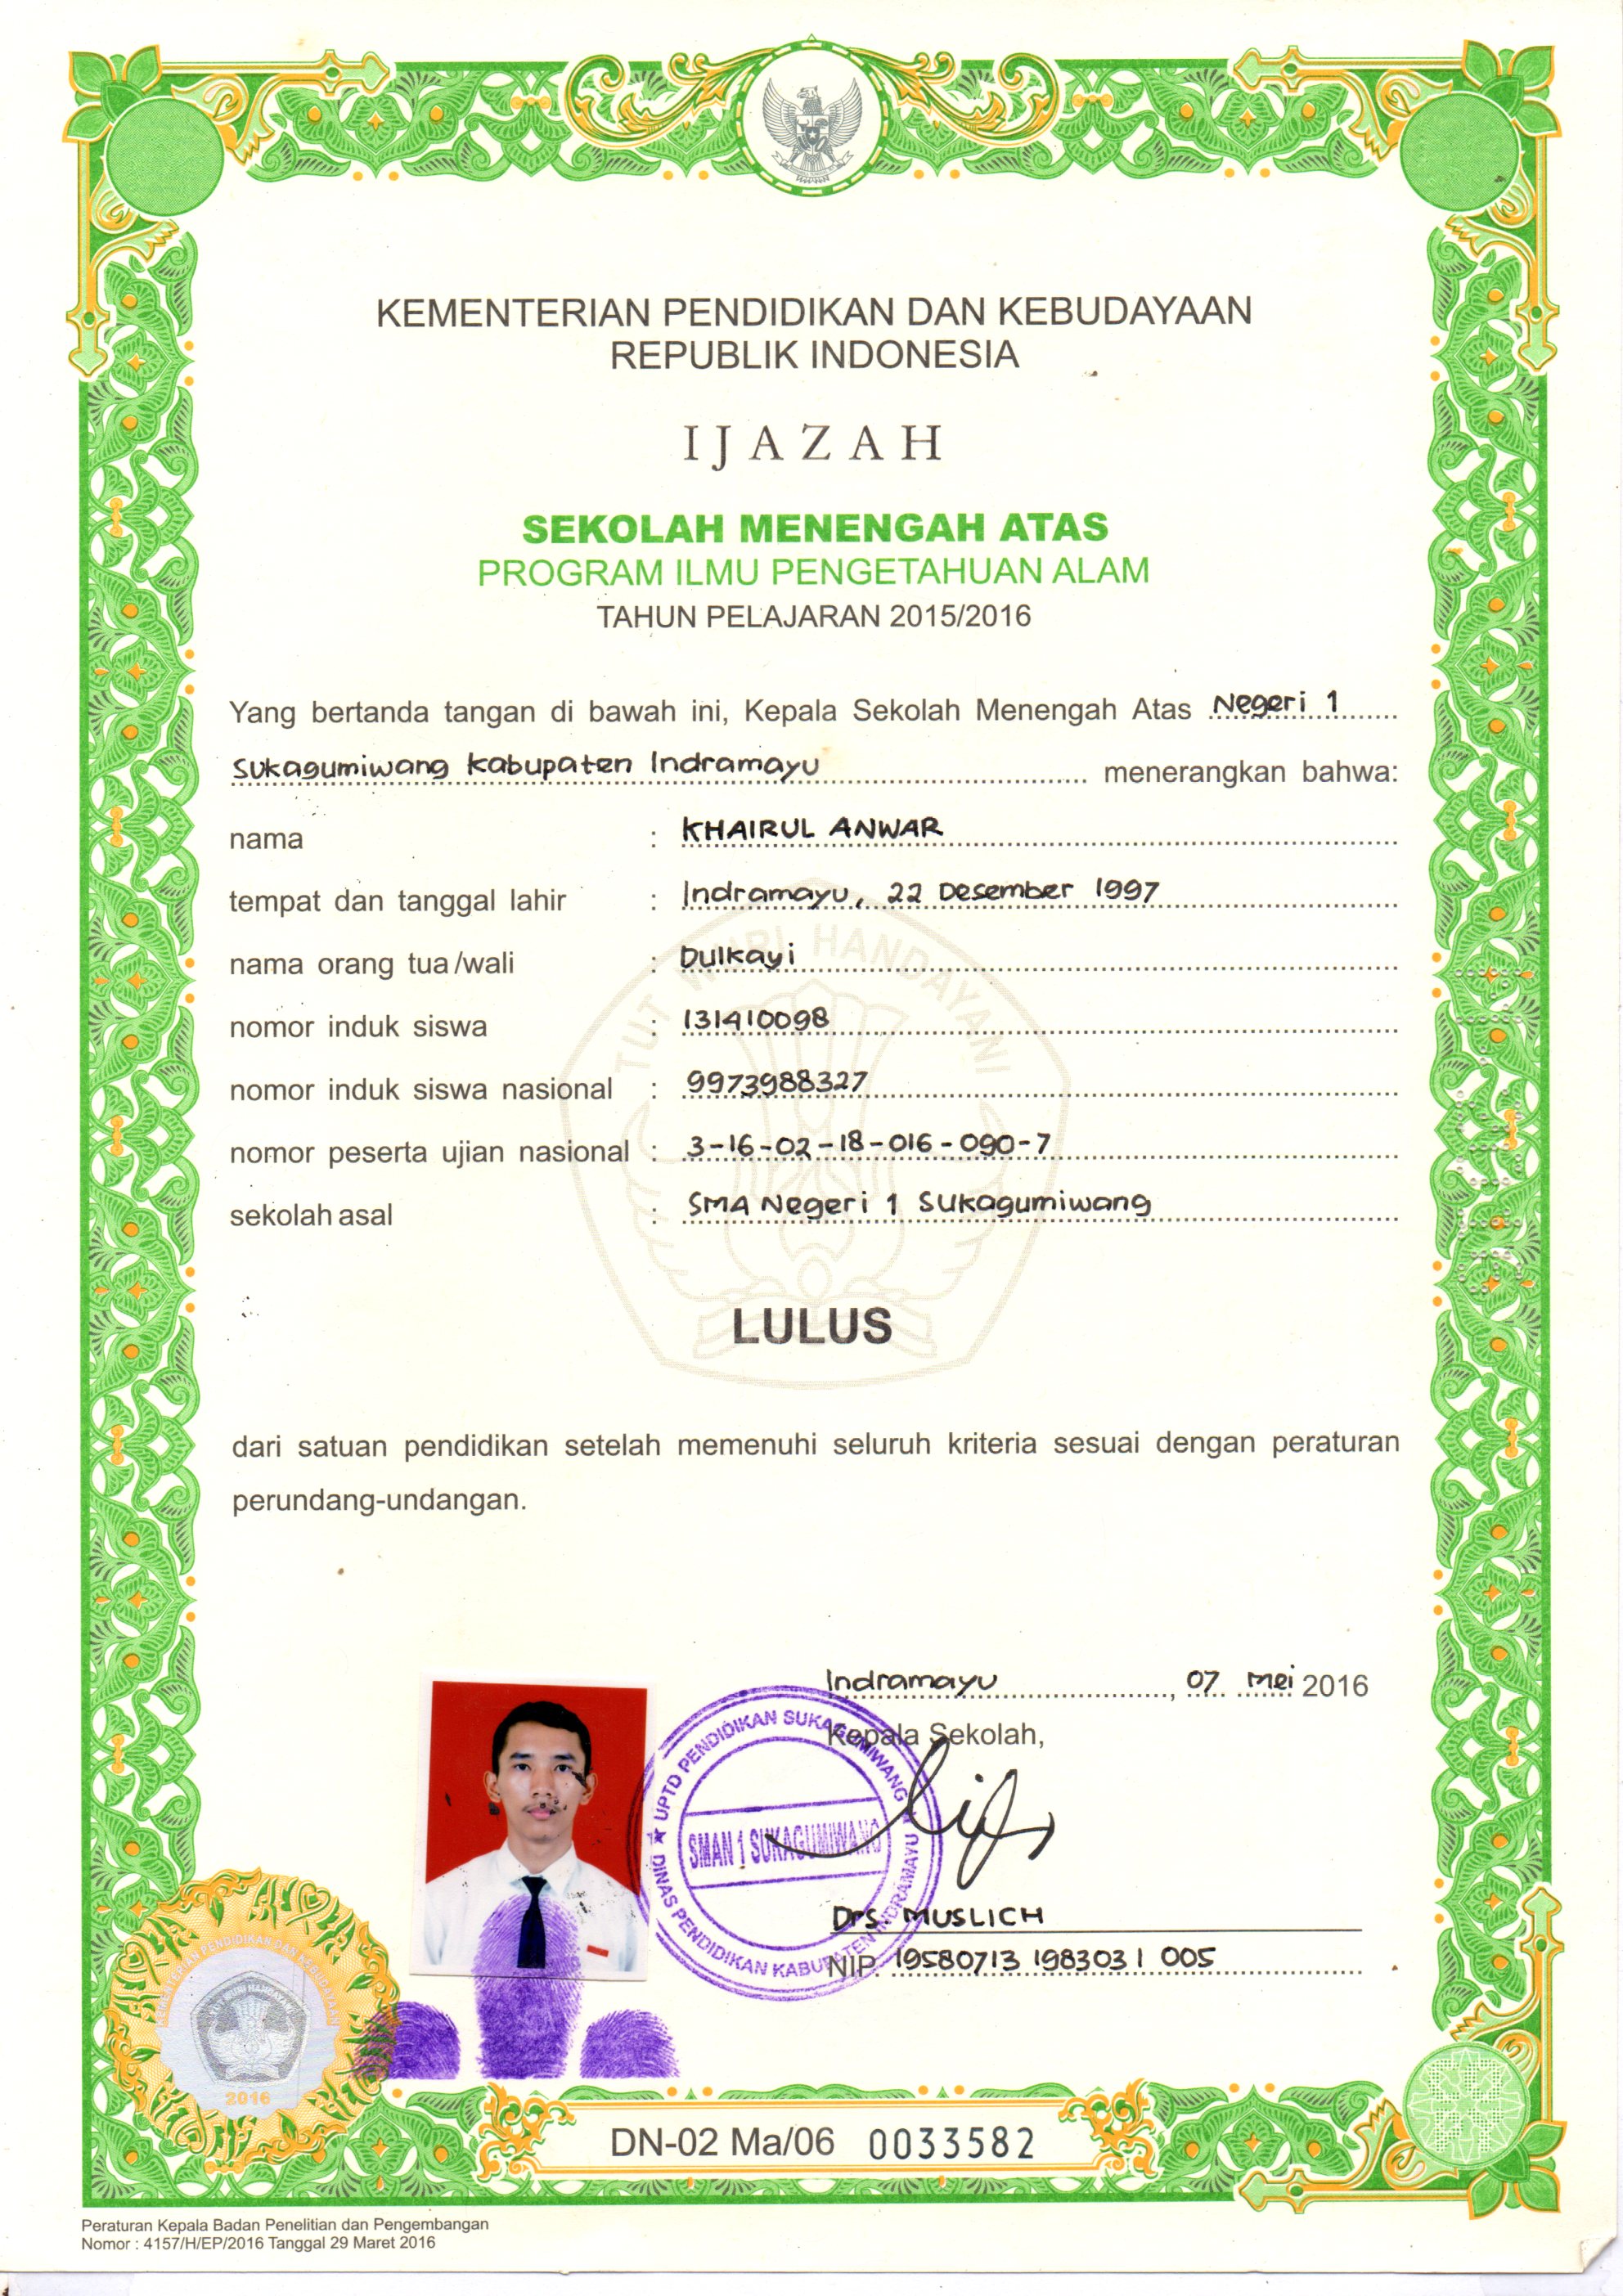 KEMENTERIAN PENDIDIKAN DAN KEBUDAYAAN
REPUBLIK INDONESIA
IJAZAH
SEKOLAH MENENGAH ATAS
PROGRAM ILMU PENGETAHUAN ALAM
TAHUN PELAJARAN 2015/2016
Yang bertanda tangan di bawah ini, Kepala Sekolah Menengah Atas Negeri 1
Sukagumiwang Kabupaten Indramayu menerangkan bahwa:
nama : KHAIRUL ANWAR
tempat dan tanggal lahir : Indramayu, 22 Desember 1997
nama orang tua/wali : Dulkayi
nomor induk siswa : 131410098
nomor induk siswa nasional : 9973988327
nomor peserta ujian nasional : 3-16-02-18-016-090-7
sekolah asal : SMA Negeri 1 Sukagumiwang
TUT WURI HANDAYANI
LULUS
dari satuan pendidikan setelah memenuhi seluruh kriteria sesuai dengan peraturan
perundang-undangan.
Indramayu, 07 Mei 2016
Kepala Sekolah,
UPTD PENDIDIKAN SUKAGUMIWANG
SMAN 1 SUKAGUMIWANG
DINAS PENDIDIKAN KABUPATEN INDRAMAYU
Drs. MUSLICH
NIP. 19580713 198303 1 005
KEMENTERIAN PENDIDIKAN DAN KEBUDAYAAN
2016
DN-02 Ma/06 0033582
Peraturan Kepala Badan Penelitian dan Pengembangan
Nomor : 4157/H/EP/2016 Tanggal 29 Maret 2016